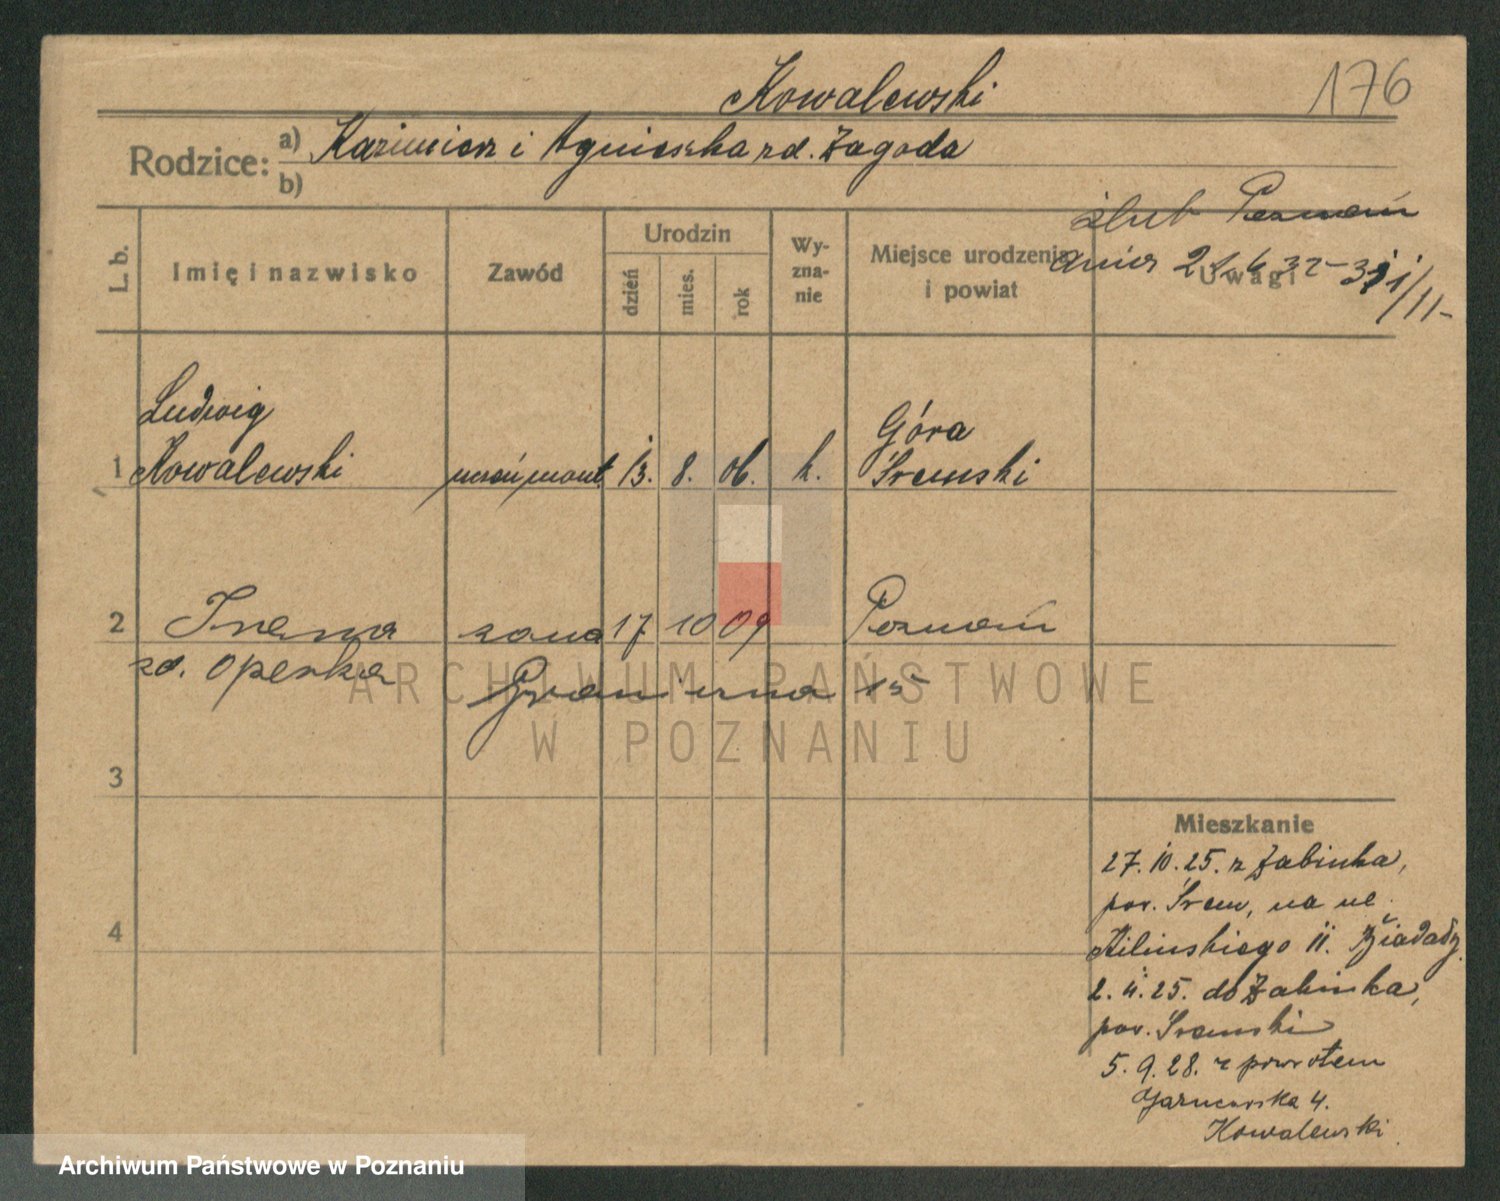 Kowalewski
176
Rodzice: a) Kazimierz i Agnieszka zd. Zagoda
b)
ślub Poznań
dnia 21.6.32
L. b.
Imię i nazwisko
Zawód
Urodzin
dzień
mies.
rok
Wy-
zna-
nie
Miejsce urodzenia
i powiat
Uwagi
Ludwig
Góra
1 Kowalewski uczeń mont. 13. 8. 06. k. Śremski
2 Irena żona 17 10 09 Poznań
zd. Operka
15
3
4
Mieszkanie
27. 10. 25. z Żabinka,
pow. Śrem, na ul.
Kilińskiego 11.
2. 4. 25. do Żabinka,
pow. Śremski
5. 9. 28. z powrotem
4.
Kowalewski
ARCHIWUM PAŃSTWOWE
W POZNANIU
Archiwum Państwowe w Poznaniu